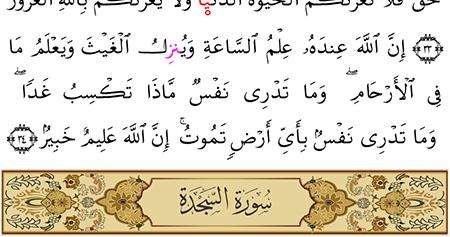 حَقٌّ فَلَا تَغُرَّنَّكُمُ الْحَيَوٰةُ الدُّنْيَا وَلَا يَغُرَّنَّكُم بِاللَّهِ الْغَرُورُ
﴿٣٣﴾ إِنَّ اللَّهَ عِندَهُۥ عِلْمُ السَّاعَةِ وَيُنزِلُ الْغَيْثَ وَيَعْلَمُ مَا
فِى الْأَرْحَامِۖ وَمَا تَدْرِى نَفْسٌ مَّاذَا تَكْسِبُ غَدًاۖ
وَمَا تَدْرِى نَفْسٌۢ بِأَىِّ أَرْضٍ تَمُوتُۚ إِنَّ اللَّهَ عَلِيمٌ خَبِيرٌۢ ﴿٣٤﴾
سُورَةُ السَّجْدَةِ